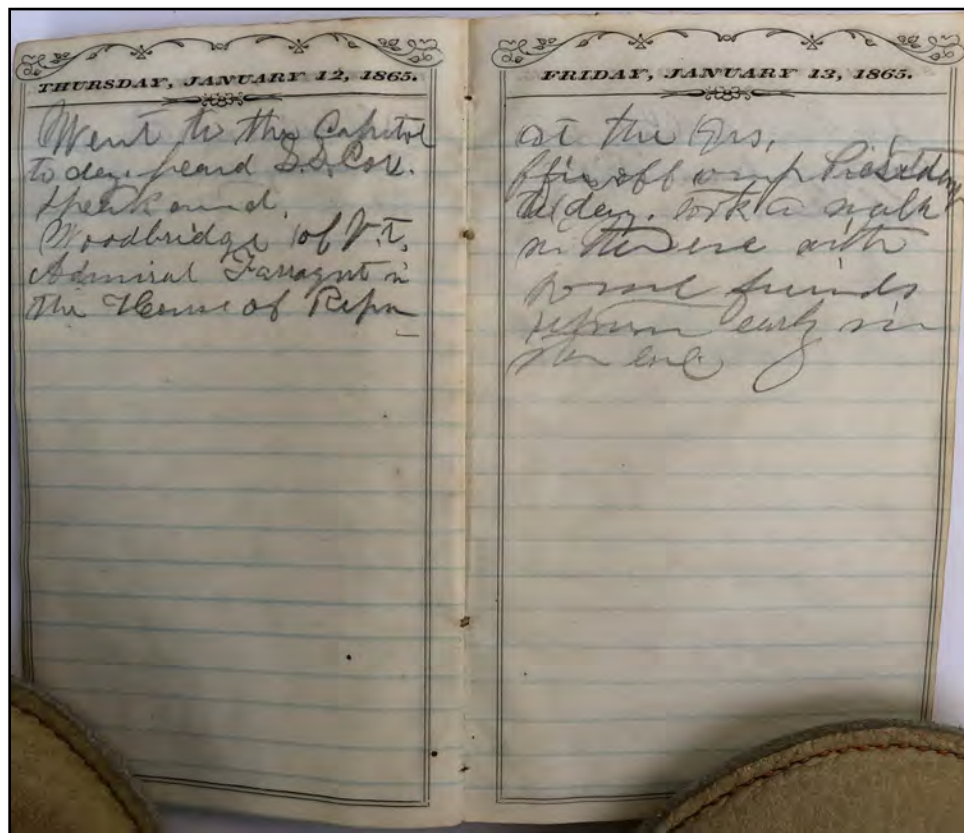 THURSDAY, JANUARY 12, 1865.
Went to the Capitol
to day, heard S.S. Cox.
speak and,
Woodbridge of V.t,
Admiral Farragut in
the House of Repn
FRIDAY, JANUARY 13, 1865.
at the Qrs,
all day. took a walk
in the eve with
some friends
early in